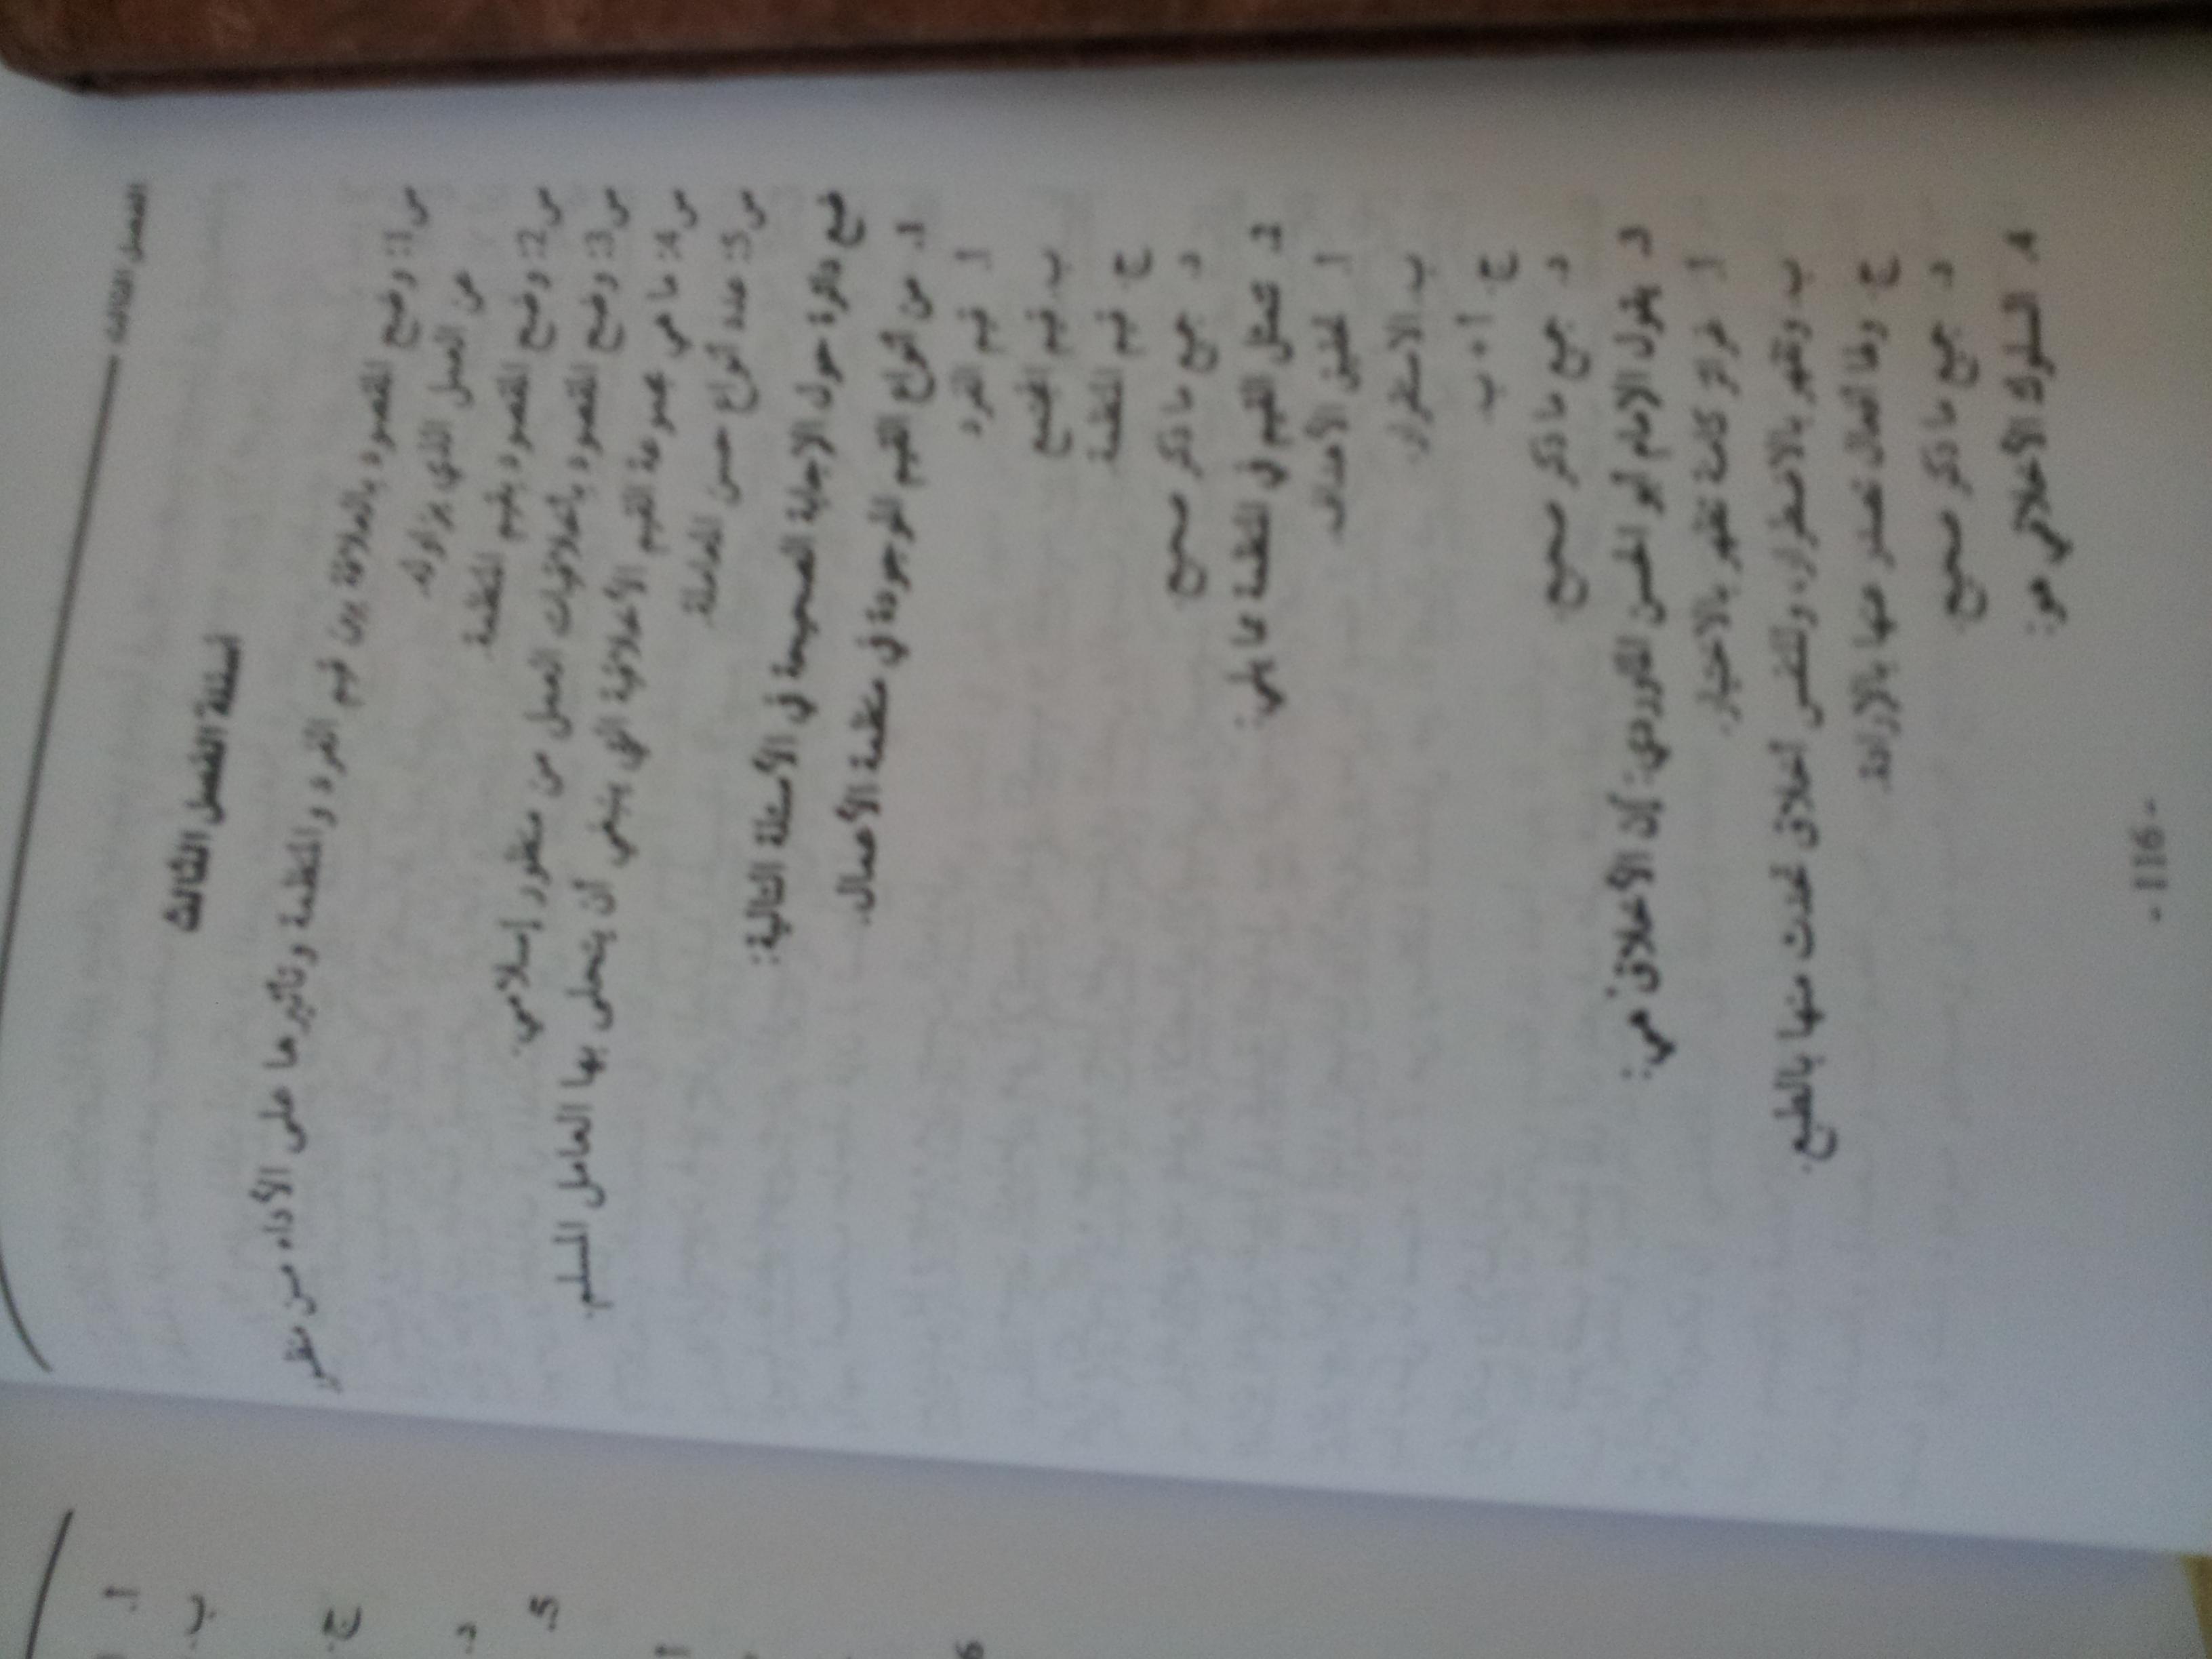 الفصل الثالث
أسئلة الفصل الثالث
س1: وضح المقصود بالعلاقة بين قيم الفرد والمنظمة وتأثيرها على الأداء من منظور
عن العمل الذي يزاوله.
س2: وضح المقصود بقيم المنظمة.
س3: وضح المقصود بأخلاقيات العمل من منظور إسلامي.
س4: ما هي مجموعة القيم الأخلاقية التي ينبغي أن يتحلى بها العامل المسلم.
س5: عدد أنواع حسن المعاملة.
ضع دائرة حول الإجابة الصحيحة في الأسئلة التالية:
1. من أنواع القيم الموجودة في منظمة الأعمال.
أ. قيم الفرد
ب. قيم المجتمع
ج. قيم المنظمة
د. جميع ما ذكر صحيح
2. تتمثل القيم في المنظمة بما يلي:
أ. تحقيق الأهداف.
ب. الاستقرار.
ج. أ + ب
د. جميع ما ذكر صحيح
3. يقول الإمام أبو الحسن الماوردي: إن الأخلاق هي:
أ. غرائز كامنة تظهر بالاختيار.
ب. وتقهر بالاضطرار، وللنفس أخلاق تحدث منها بالطبع.
ج. ولها أفعال تصدر عنها بالإرادة.
د. جميع ما ذكر صحيح
4. السلوك الأخلاقي هو:
- 116 -
أ.
ب.
ج.
د.
5.
أ
6